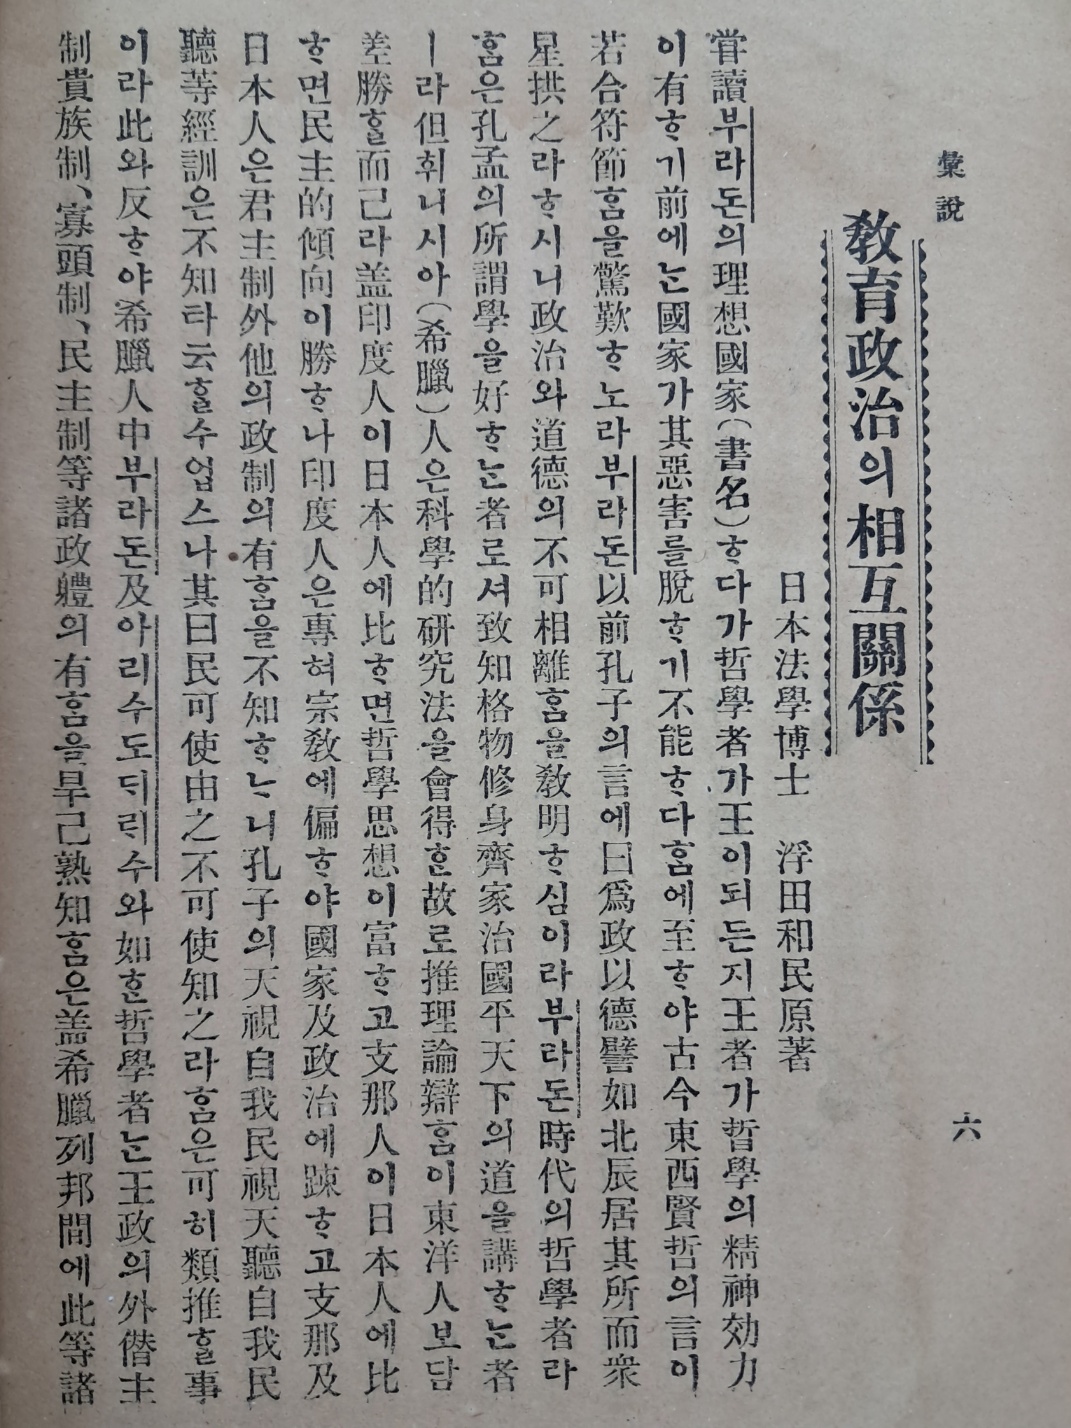 彙說
六
敎育政治의相互關係
日本法學博士 浮田和民原著
甞讀부라돈의理想國家(書名)ᄒᆞ다가哲學者가王이되든지王者가哲學의精神効力
이有ᄒᆞ기前에ᄂᆞᆫ國家가其惡害를脫ᄒᆞ기不能ᄒᆞ다ᄒᆞᆷ에至ᄒᆞ야古今東西賢哲의言이
若合符節ᄒᆞᆷ을驚歎ᄒᆞ노라부라돈以前孔子의言에曰爲政以德譬如北辰居其所而衆
星拱之라ᄒᆞ시니政治와道德의不可相離ᄒᆞᆷ을敎明ᄒᆞ심이라부라돈時代의哲學者라
ᄒᆞᆷ은孔孟의所謂學을好ᄒᆞᄂᆞᆫ者로셔致知格物修身齊家治國平天下의道을講ᄒᆞᄂᆞᆫ者
ㅣ라但휘니시아(希臘)人은科學的硏究法을會得ᄒᆞᆫ故로推理論辯ᄒᆞᆷ이東洋人보담
差勝ᄒᆞᆯ而已라盖印度人이日本人에比ᄒᆞ면哲學思想이富ᄒᆞ고支那人이日本人에比
ᄒᆞ면民主的傾向이勝ᄒᆞ나印度人은專혀宗敎에偏ᄒᆞ야國家及政治에踈ᄒᆞ고支那及
日本人은君主制外他의政制의有ᄒᆞᆷ을不知ᄒᆞᄂᆞ니孔子의天視自我民視天聽自我民
聽等經訓은不知타云ᄒᆞᆯ수업스나其曰民可使由之不可使知之라ᄒᆞᆷ은可히類推ᄒᆞᆯ事
이라此와反ᄒᆞ야希臘人中부라돈及아리수도ᄐᆡ리수와如ᄒᆞᆫ哲學者ᄂᆞᆫ王政의外僭主
制貴族制、寡頭制、民主制等諸政軆의有ᄒᆞᆷ을早已熟知ᄒᆞᆷ은盖希臘列邦間에此等諸